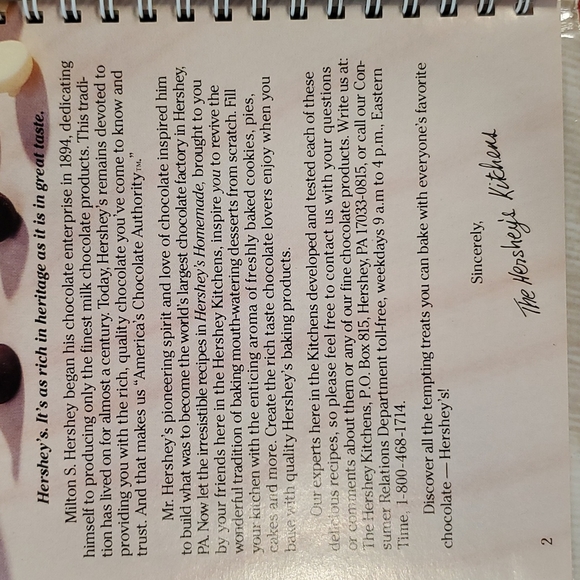 Hershey's. It's as rich in heritage as it is in great taste.
Milton S. Hershey began his chocolate enterprise in 1894, dedicating
himself to producing only the finest milk chocolate products. This tradi-
tion has lived on for almost a century. Today, Hershey's remains devoted to
providing you with the rich, quality chocolate you've come to know and
trust. And that makes us "America's Chocolate Authority™."
Mr. Hershey's pioneering spirit and love of chocolate inspired him
to build what was to become the world's largest chocolate factory in Hershey,
PA. Now let the irresistible recipes in Hershey's Homemade, brought to you
by your friends here in the Hershey Kitchens, inspire you to revive the
wonderful tradition of baking mouth-watering desserts from scratch. Fill
your kitchen with the enticing aroma of freshly baked cookies, pies,
cakes and more. Create the rich taste chocolate lovers enjoy when you
bake with quality Hershey's baking products.
Our experts here in the Kitchens developed and tested each of these
delicious recipes, so please feel free to contact us with your questions
or comments about them or any of our fine chocolate products. Write us at:
The Hershey Kitchens, P.O. Box 815, Hershey, PA 17033-0815, or call our Con-
sumer Relations Department toll-free, weekdays 9 a.m to 4 p.m., Eastern
Time, 1-800-468-1714.
Discover all the tempting treats you can bake with everyone's favorite
chocolate—Hershey's!
Sincerely,
The Hershey's Kitchens
2